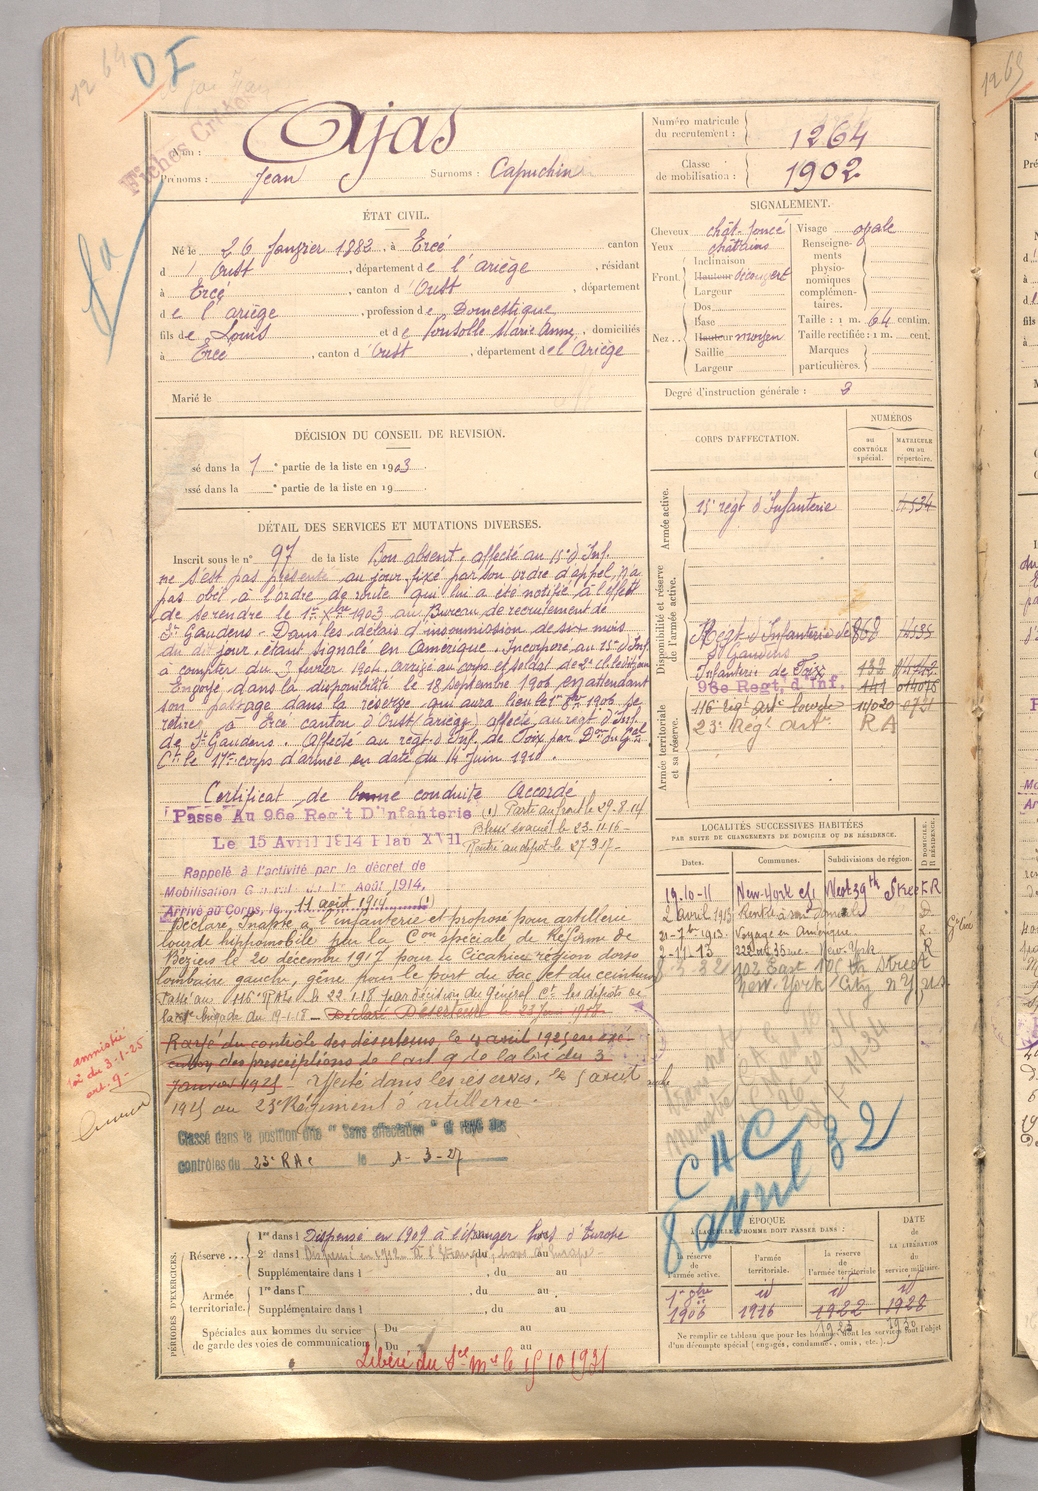 1264
DF
Fiches
Nom : Ajas
Prénoms : Jean Surnoms : Capuchin
Numéro matricule du recrutement : 1264
Classe de mobilisation : 1902
ÉTAT CIVIL.
Né le 26 Janvier 1882, à Ercé canton
d' Oust, département de l'ariège, résidant
à Ercé, canton d'Oust, département
de l'ariège, profession de Domestique
fils de Louis et de Fonsolle Marie Anne, domiciliés
à Ercé, canton d'Oust, département de l'Ariège
Marié le
SIGNALEMENT.
Cheveux chât. foncé
Yeux châtains
Front. Inclinaison
Hauteur découvert
Largeur
Nez.. Dos
Base
Hauteur moyen
Saillie
Largeur
Visage ovale
Renseignements physionomiques complémentaires.
Taille : 1 m. 64 centim.
Taille rectifiée : 1 m. cent.
Marques particulières.
Degré d'instruction générale : 3
DÉCISION DU CONSEIL DE REVISION.
sé dans la 1 e partie de la liste en 1903
ssé dans la e partie de la liste en 19
DÉTAIL DES SERVICES ET MUTATIONS DIVERSES.
Inscrit sous le n° 97 de la liste Bon absent, affecté au 15e d'Inf.
ne s'est pas présenté au jour fixé par son ordre d'appel, n'a
pas obéi à l'ordre de route qui lui a été notifié à l'effet
de se rendre le 1er Xbre 1903 au Bureau de recrutement de
St Gaudens - Dans les délais d'insoumission de six mois
du dit jour, étant signalé en Amérique. Incorporé au 15e d'Inf.
à compter du 3 février 1904. arrivé au corps et soldat de 2e cl. le dit jour
Envoyé dans la disponibilité le 18 septembre 1906 en attendant
son passage dans la réserve qui aura lieu le 1er 8bre 1906 se
retire à Ercé canton d'Oust (ariège) affecté au régt d'Inf.
de St Gaudens. Affecté au régt d'Inf. de Foix par Don du Gal
Ct le 17e corps d'armée en date du 14 Juin 1910.
Certificat de bonne conduite Accordé
Passé Au 96e Regt D'Infanterie
Le 15 Avril 1914 Plan XVII
(1) Parti au front le 29.8.14
Blessé évacué le 23-11-16-
Rentré au dépôt le 27.3.17-
Rappelé à l'activité par le décret de
Mobilisation Août 1914.
Arrivé au Corps, le 11 août 1914 (1)
Déclaré Inapte à l'infanterie et proposé pour artillerie
lourde hippomobile par la Con spéciale de Réforme de
Béziers le 20 décembre 1917 pour 1e Cicatrice région dorso
lombaire gauche, gêne pour le port du sac et du ceinturon
Passé au 116e RAL le 22.1.18 par décision du Général Ct les dépôts de
brigade du 19-1-18 - Déclaré Déserteur le
Rayé du contrôle des déserteurs le 4 avril 1925 en exé-
cution des prescriptions de l'art 9 de la loi du 3
Janvier 1925 - affecté dans les réserves, le 5 août
1925 au 23e Régiment d'artillerie.
amnistié
loi du 3-1-25
art. 9-
Classé dans la position dite "Sans affectation" et rayé des
contrôles du 23e RAC le 1-3-27
CORPS D'AFFECTATION.
NUMÉROS
au CONTRÔLE spécial.
MATRICULE ou au répertoire.
Armée active.
15e régt d'Infanterie 4534
Disponibilité et réserve de l'armée active.
Régt d'Infanterie de St Gaudens
Infanterie de Foix
96e Regt. d'Inf. 141
116 régt artie lourde
Armée territoriale et sa réserve.
23e Régt artie RA
LOCALITÉS SUCCESSIVES HABITÉES
PAR SUITE DE CHANGEMENTS DE DOMICILE OU DE RÉSIDENCE.
Dates. Communes. Subdivisions de région. D DOMICILE. R RÉSIDENCE.
19.10-11 New-York West 39th Street R
2 avril 1913 Rentré à son domicile D
Voyage en Amérique R
2-11-13 New-York R
102 East 106th Street
New-York City N.Y. USA
CHC
8 avril 32
PÉRIODES D'EXERCICES.
Réserve... 1re dans l Dispensé en 1909 à l'étranger hors d'Europe
2e dans l Dispensé en 1912 à l'étranger, du hors au Europe
Supplémentaire dans l , du au
Armée territoriale. 1re dans l' , du au
Supplémentaire dans l , du au
Spéciales aux hommes du service de garde des voies de communication Du au
Du au
Libéré du Sce Mre le 15 10 1931
ÉPOQUE
À LAQUELLE L'HOMME DOIT PASSER DANS :
la réserve de l'armée active. l'armée territoriale. la réserve de l'armée territoriale
DATE de LA LIBÉRATION du service militaire.
1er 8bre 1906 id 1916 id 1922 id 1928
1923 1930
Ne remplir ce tableau que pour les hommes dont les services font l'objet
d'un décompte spécial (engagés, condamnés, omis, etc.)
1265